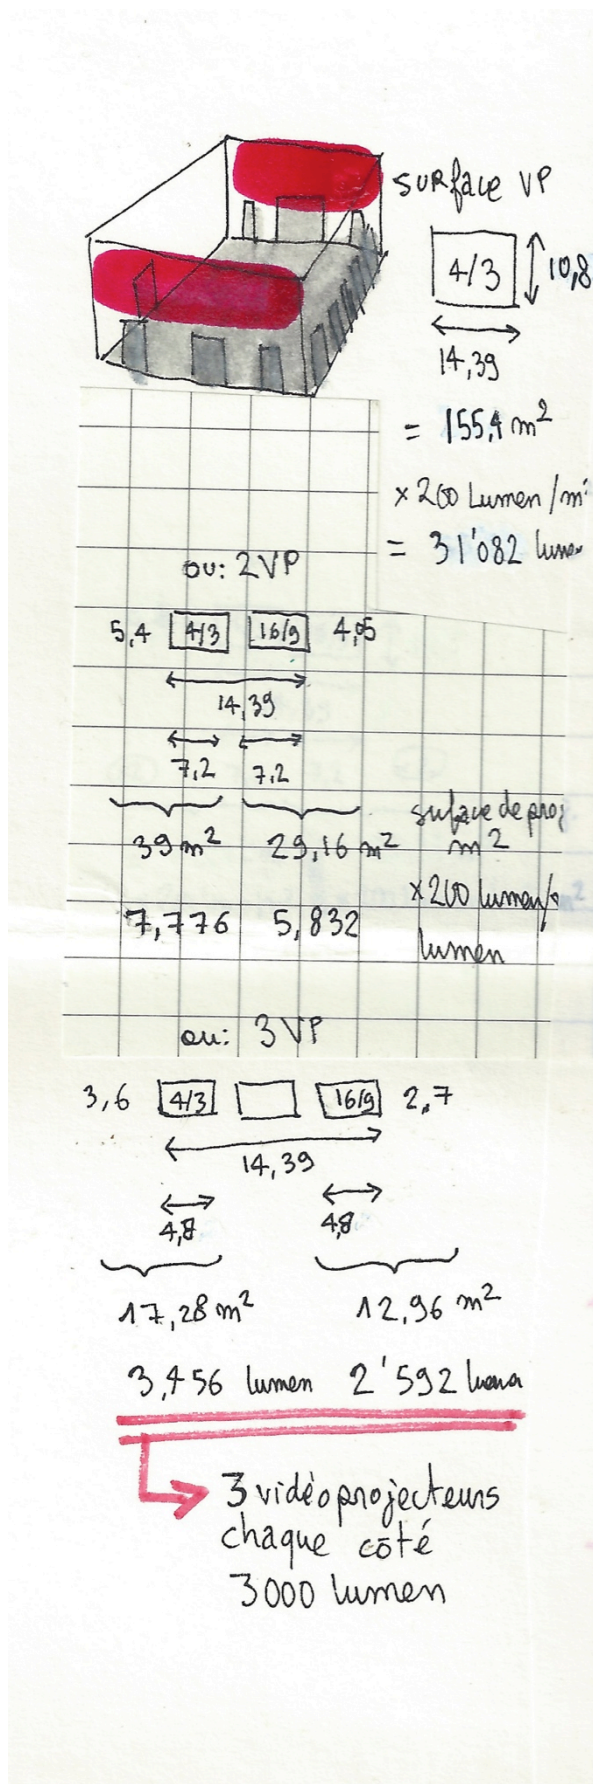 surface VP
4/3 10,8
14,39
= 155,4 m²
× 200 Lumen/m²
= 31'082 lumen
ou: 2VP
5,4 4/3 16/9 4,05
14,39
7,2 7,2
39 m² 29,16 m² surface de proj
m²
× 200 lumen/
7,776 5,832
lumen
ou: 3 VP
3,6 4/3 16/9 2,7
14,39
4,8 4,8
17,28 m² 12,96 m²
3,456 lumen 2'592 lumen
3 vidéoprojecteurs
chaque côté
3000 lumen